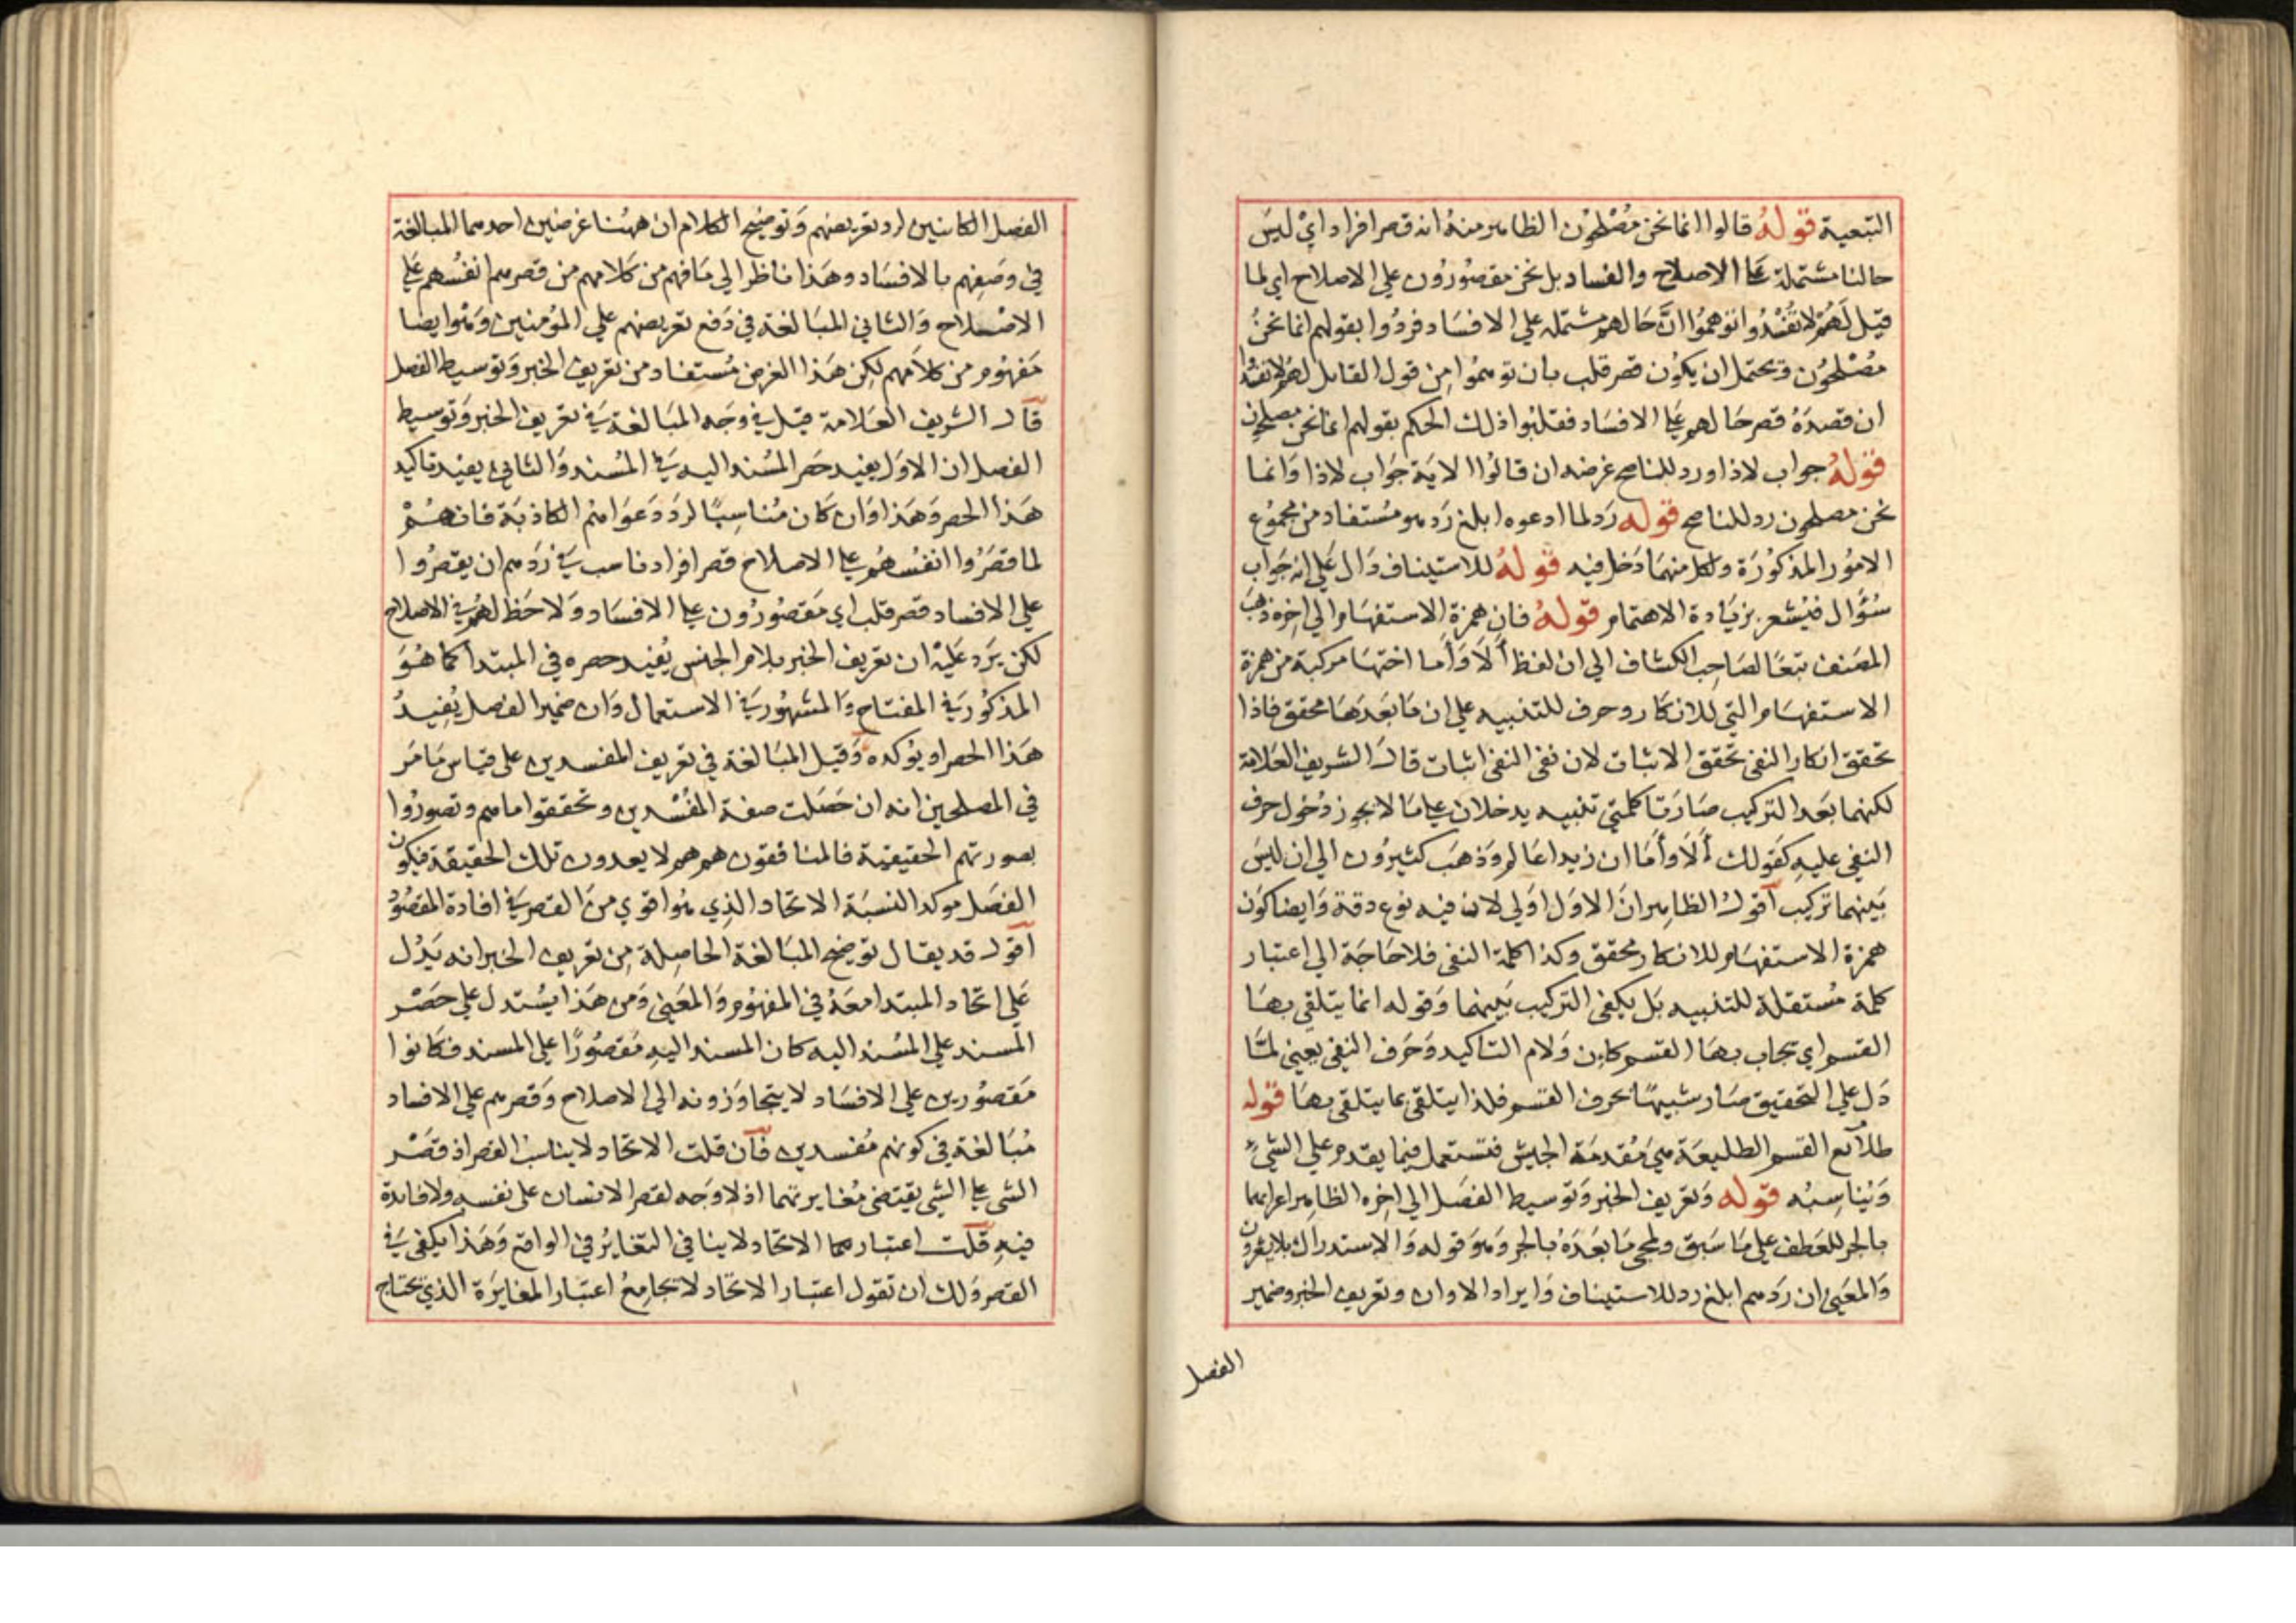 التبعية قوله قالوا انما نحن مصلحون الظاهر منه انه قصر افراد اي ليس
حالنا مشتملة على الاصلاح والفساد بل نحن مقصورون على الاصلاح اي لما
قيل لهم لا تفسدوا توهموا ان حالهم مشتملة على الافساد فردوا بقولهم انما نحن
مصلحون ويحتمل ان يكون قصر قلب بان توهموا من قول القايل لهم لا تفسدوا
ان قصده قصر حالهم على الافساد فقلبوا ذلك الحكم بقولهم انما نحن مصلحون
قوله جواب لاذا ورد للناصح غرضه ان قالوا الاية جواب لاذا وانما
نحن مصلحون رد للناصح قوله رد لما ادعوه ابلغ رد هو مستفاد من مجموع
الامور المذكورة ولكل منهما دخل فيه قوله للاستيناف دال على انه جواب
سؤال فيشعر بزيادة الاهتمام قوله فان همزة الاستفهام الى اخره ذهب
المصنف تبعا لصاحب الكشاف الي ان لفظ ألا وأما اختها مركبة من همزة
الاستفهام التي للانكار وحرف للتنبيه على ان ما بعدها محقق فاذا
تحقق انكار النفى تحقق الاثبات لان نفى النفى اثبات قال الشريف العلامة
لكنهما بعد التركيب صارتا كلمتي تنبيه يدخلان على ما لا يجوز دخول حرف
النفى عليه كقولك ألا وأما ان زيدا عالم وذهب كثيرون الي ان ليس
بينهما تركيب اقول الظاهر ان الاول اولي لان فيه نوع دقة وايضا كون
همزة الاستفهام للانكار محقق وكذا كلمة النفى فلا حاجة الي اعتبار
كلمة مستقلة للتنبيه بل يكفى التركيب بينهما وقوله انما يتلقى بها
القسم اي يجاب بها القسم كان ولام التاكيد وحرف النفى يعني لما
دل على التحقيق صار شبيها بحرف القسم فلذا يتلقى بما يتلقى بها قوله
طلائع القسم الطليعة هي مقدمة الجيش فتستعمل فيما يقدم على الشيء
ويناسبه قوله وتعريف الخبر وتوسيط الفصل الي اخره الظاهر اعرابهما
بالجر للعطف على ما سبق ولمجى ما بعده بالجر وهو قوله والاستدراك بلا يشعرون
والمعنى ان ردهم ابلغ رد للاستيناف وايراد الا وان وتعريف الخبر وضمير
الفصل
الفصل الكاينين لرد تعريضهم وتوضيح الكلام ان ههنا غرضين احدهما المبالغة
في وصفهم بالافساد وهذا ناظر الي ما فهم من كلامهم من قصرهم انفسهم على
الاصلاح والثاني المبالغة في دفع تعريضهم على المؤمنين وهو ايضا
مفهوم من كلامهم لكن هذا الغرض مستفاد من تعريف الخبر وتوسيط الفصل
قال الشريف العلامة قيل في وجه المبالغة في تعريف الخبر وتوسيط
الفصل ان الاول يفيد حصر المسند اليه في المسند والثاني يفيد تاكيد
هذا الحصر وهذا وان كان مناسبا لرد دعواهم الكاذبة فانهم
لما قصروا انفسهم على الاصلاح قصر افراد ناسب في ردهم ان يقصروا
على الافساد قصر قلب اي مقصورون على الافساد ولا حظ لهم في الاصلاح
لكن يرد عليه ان تعريف الخبر بلام الجنس يفيد حصره في المبتدا كما هو
المذكور في المفتاح والمشهور في الاستعمال وان ضمير الفصل يفيد
هذا الحصر او يؤكده وقيل المبالغة في تعريف المفسدين على قياس ما مر
في المصلحين انه ان حصلت صفة المفسدين وتحققوا ماهم وتصوروا
بصورتهم الحقيقية فالمنافقون هم هم لا يعدون تلك الحقيقة فيكون
الفصل موكد النسبة الاتحاد الذي هو اقوي من القصر في افادة المقصود
اقول قد يقال توضيح المبالغة الحاصلة من تعريف الخبر انه يدل
على اتحاد المبتدا معه في المفهوم والمعنى ومن هذا يستدل على حصر
المسند على المسند اليه كان المسند اليه مقصورا على المسند فكانوا
مقصورين على الافساد لا يتجاوزونه الى الاصلاح وقصرهم على الافساد
مبالغة في كونهم مفسدين فان قلت الاتحاد لا يناسب القصر اذ قصر
الشي على الشي يقتضى مغايرتهما اذ لا وجه لقصر الانسان على نفسه ولا فايدة
فيه قلت اعتبار هما الاتحاد لا ينافي التغاير في الواقع وهذا يكفى في
القصر ولك ان تقول اعتبار الاتحاد لا تجامع اعتبار المغايرة الذي يحتاج